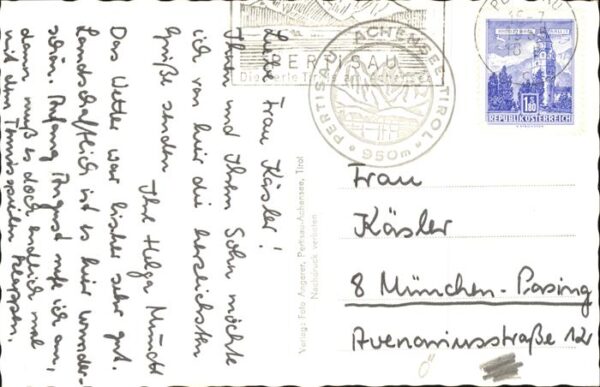 Liebe Frau Käsler!
Ihnen und Ihrem Sohn möchte
ich von hier die herzlichsten
Grüße senden
Ihre Helga Mücke
Das Wetter war bisher sehr gut.
Landschaftlich ist es hier wunder-
schön. Anfang August rufe ich an,
dann muß es doch endlich mal
mit dem Tennisspielen klappen.
PERTISAU
Die Perle Tirols am Achensee
PERTISAU ACHENSEE-TIROL
950m
1.80
REPUBLIK ÖSTERREICH
Verlag: Foto Angerer, Pertisau-Achensee, Tirol
Nachdruck verboten
Frau
Käsler
8 München-Pasing
Avenariusstraße 12
Ö